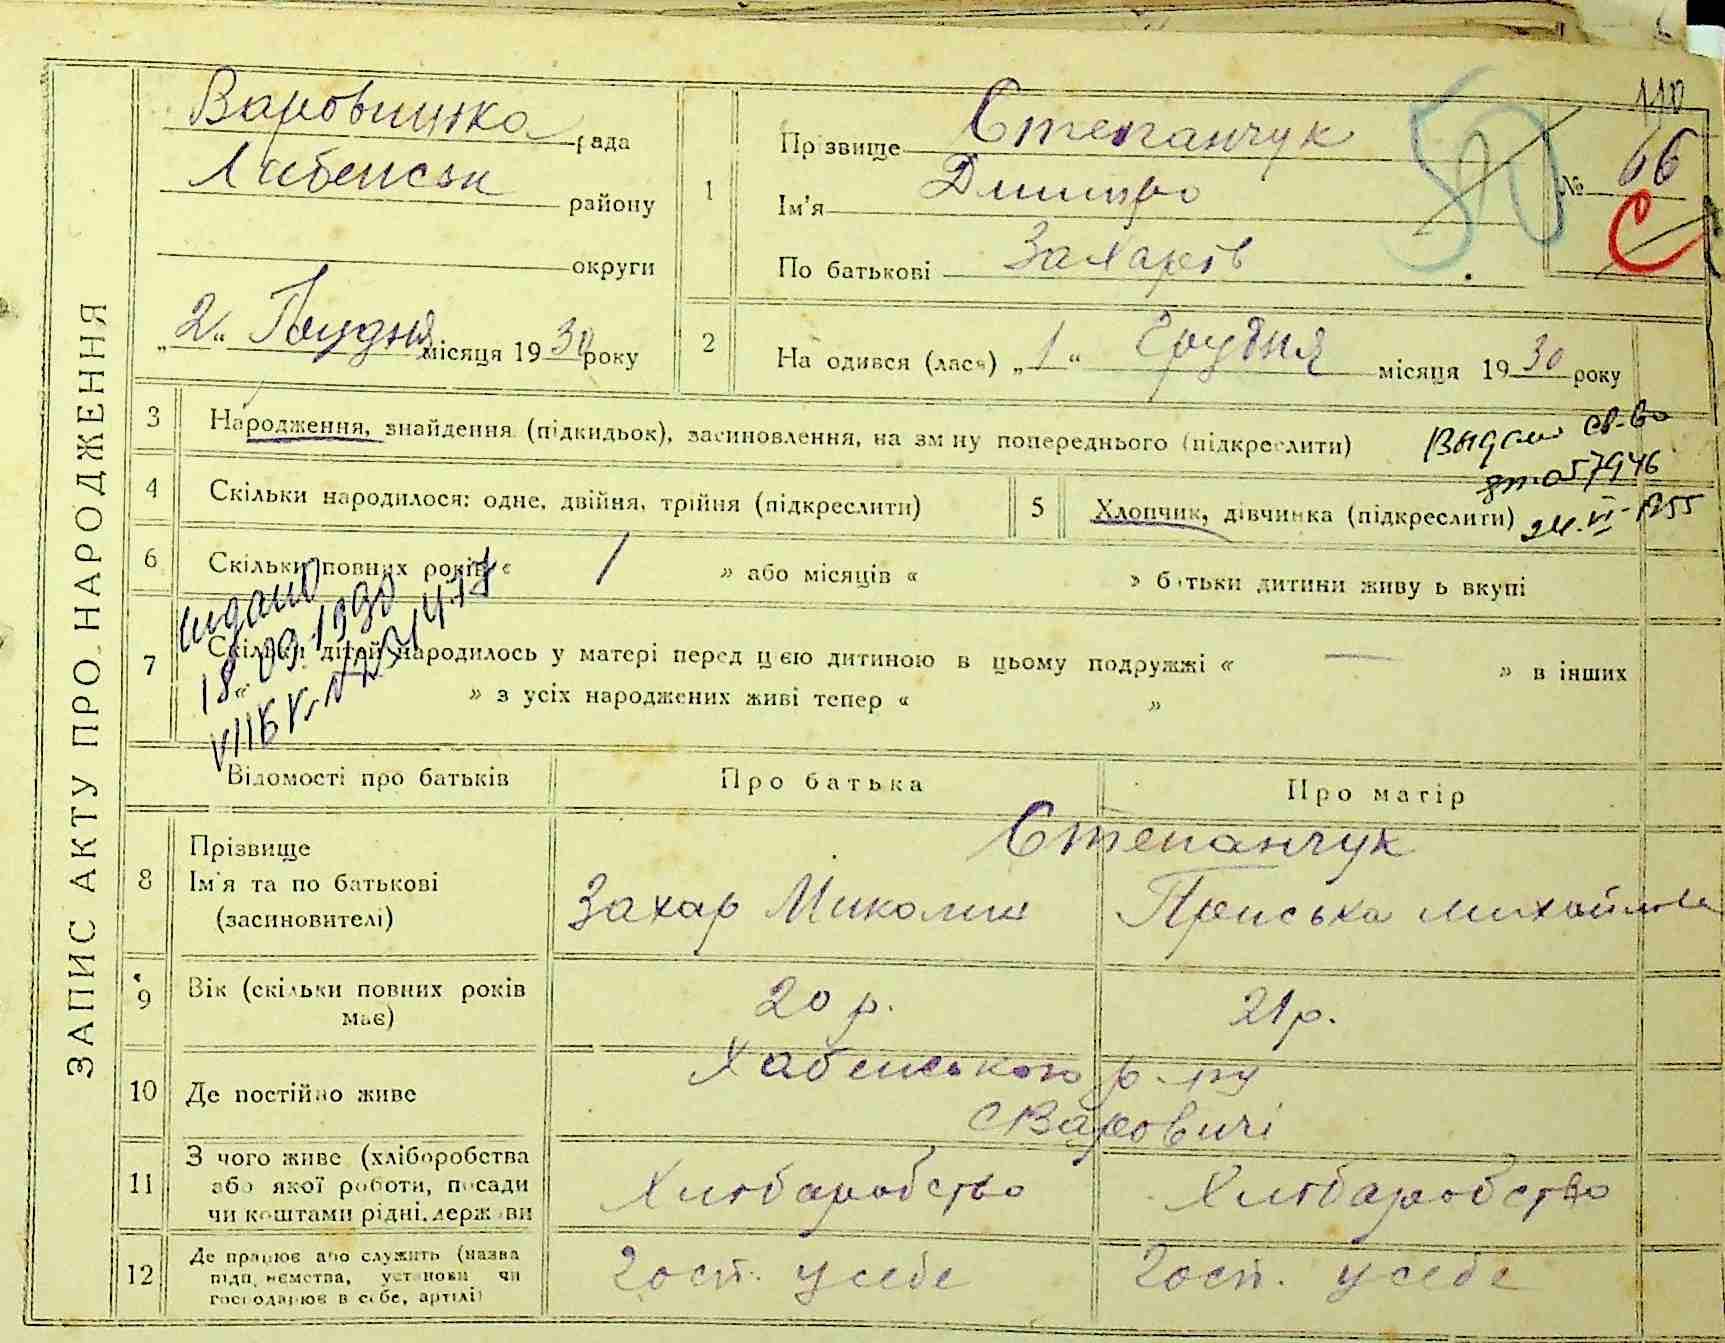 110
ЗАПИС АКТУ ПРО НАРОДЖЕННЯ
рада
району
округи
"2" Грудня місяця 1930 року
1
Прізвище Степанчук
Ім'я Дмитро
По батькові Захарів
№ 66
50
С
2
Народився (лася) "1" Грудня місяця 1930 року
3 Народження, знайдення (підкидьок), засиновлення, на зміну попереднього (підкреслити)
4 Скільки народилося: одне, двійня, трійня (підкреслити)
5 Хлопчик, дівчинка (підкреслити)
Выдано св-во
057946
24.VI-1955
6 Скільки повних років « / » або місяців « » батьки дитини живуть вкупі
видано
18.09.1990
7 Скільки дітей народилось у матері перед цією дитиною в цьому подружжі « — » в інших
» з усіх народжених живі тепер « »
Відомості про батьків
Про батька
Про матір
8
Прізвище
Ім'я та по батькові
(засиновителі)
Степанчук
Захар Миколин
Приська Михайлова
9
Вік (скільки повних років
має)
20 р.
21 р.
10 Де постійно живе
Хабенського р-ну
с Варовичі
11
З чого живе (хліборобства
або якої роботи, посади
чи коштами рідні, держави
Хліборобство
Хліборобство
12
Де працює або служить (назва
підпиємства, установи чи
господарює в себе, артілі)
Госп. у себе
Госп. у себе